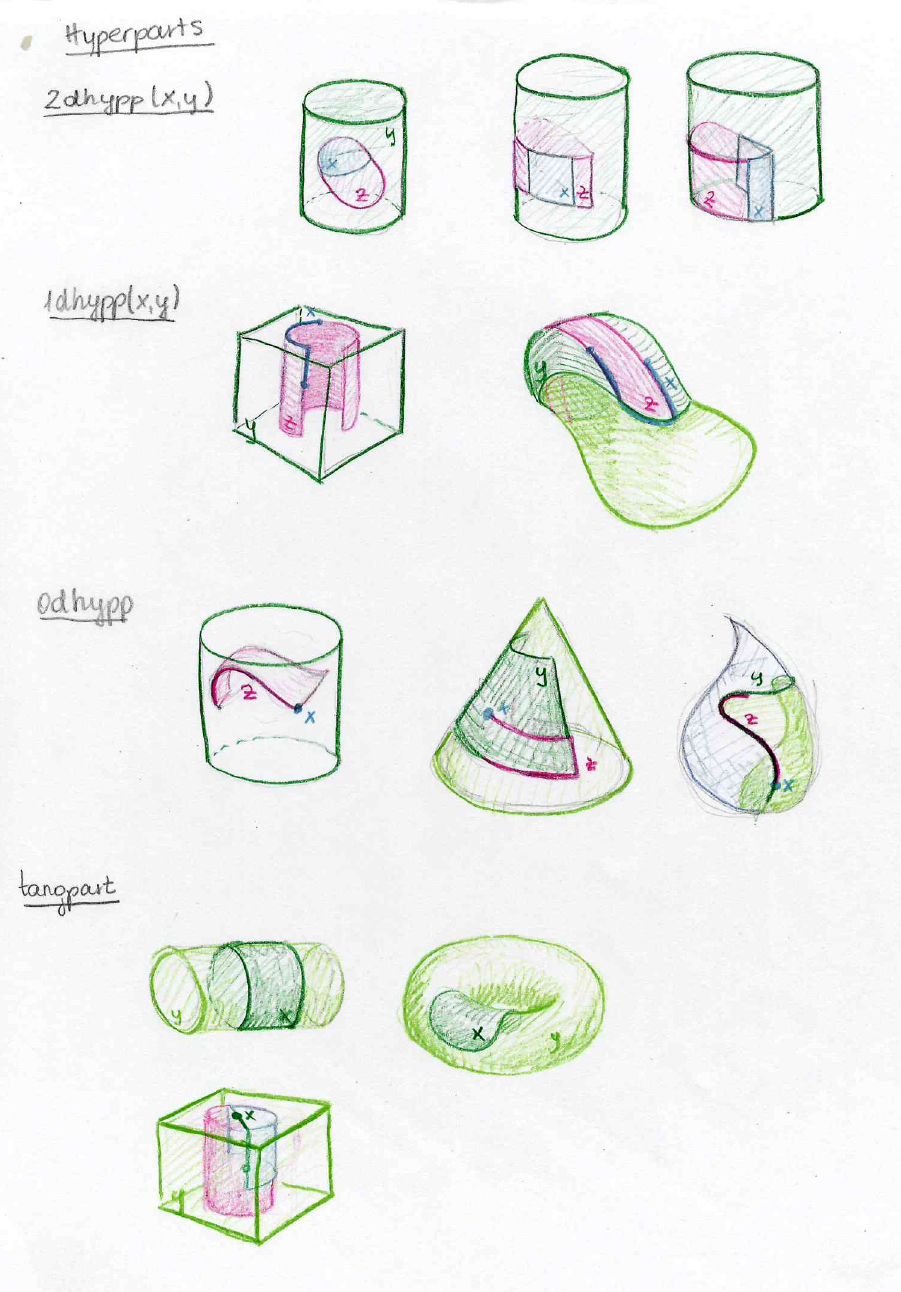 Hyperparts
2dhypp(x,y)
y
x
z
x z
z x
1dhypp(x,y)
x
z
y
y
x
z
0dhypp
z
x
y
x
z
y
z
x
tangpart
y x
x y
x
y